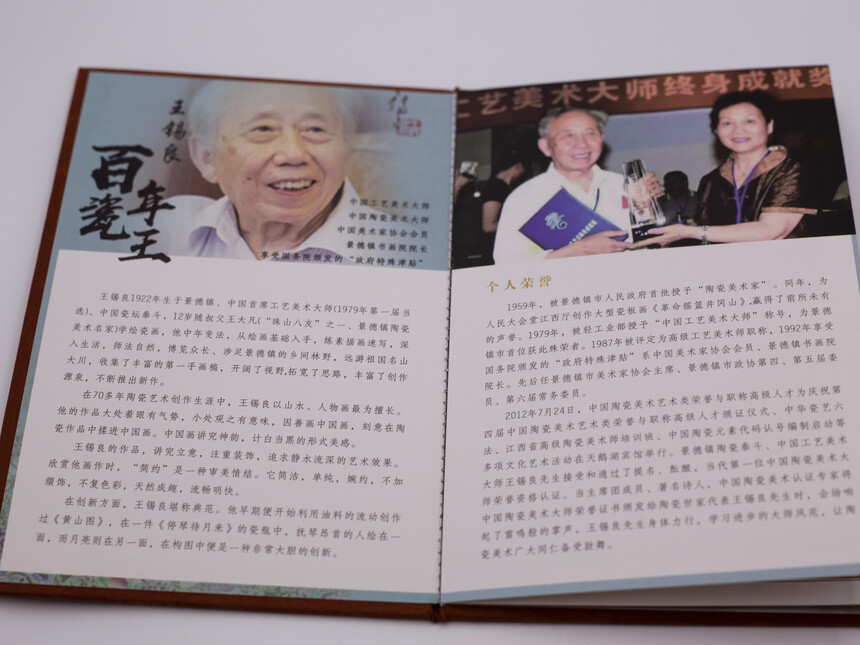 王锡良
百年
瓷王
中国工艺美术大师
中国陶瓷美术大师
中国美术家协会会员
景德镇书画院院长
享受国务院颁发的“政府特殊津贴”
王锡良1922年生于景德镇、中国首席工艺美术大师(1979年第一届当
选)、中国瓷坛泰斗，12岁随叔父王大凡(“珠山八友”之一、景德镇陶瓷
美术名家)学绘瓷画，他中年变法，从绘画基础入手，练素描画速写，深
入生活，师法自然，博览众长、涉足景德镇的乡间林野，远游祖国名山
大川，收集了丰富的第一手画稿，开阔了视野,拓宽了思路，丰富了创作
源泉，不断推出新作。
在70多年陶瓷艺术创作生涯中，王锡良以山水、人物画最为擅长。
他的作品大处着眼有气势，小处观之有意味，因善画中国画，刻意在陶
瓷作品中揉进中国画。中国画讲究神韵，计白当黑的形式美感。
王锡良的作品，讲究立意，注重装饰，追求静水流深的艺术效果。
欣赏他画作时，“简约”是一种审美情结。它简洁，单纯，婉约，不加
缀饰，不复色彩，天然成趣，流畅明快。
在创新方面，王锡良堪称典范。他早期便开始利用油料的流动创作
过《黄山图》，在一件《停琴待月来》的瓷瓶中，抚琴昂首的人绘在一
面，而月亮则在另一面，在构图中便是一种非常大胆的创新。
工艺美术大师终身成就奖
个人荣誉
1959年，被景德镇市人民政府首批授予“陶瓷美术家”。同年，为
人民大会堂江西厅创作大型瓷板画《革命摇篮井冈山》,赢得了前所未有
的声誉。1979年，被轻工业部授予“中国工艺美术大师”称号，为景德
镇市首位获此殊荣者。1987年被评定为高级工艺美术师职称，1992年享受
国务院颁发的“政府特殊津贴”系中国美术家协会会员、景德镇书画院
院长。先后任景德镇市美术家协会主席、景德镇市政协第四、第五委
员、第六届常务委员。
2012年7月24日，中国陶瓷美术艺术类荣誉与职称高级人才为庆祝第
四届中国陶瓷美术艺术类荣誉与职称高级人才颁证仪式、中华瓷艺六
法、江西省高级陶瓷美术师培训班、中国陶瓷元素代码认号编制启动等
多项文化艺术活动在天鹅湖宾馆举行。景德镇陶瓷泰斗、中国工艺美术
大师王锡良先生接受和通过了提名、酝酿，当代第一位中国陶瓷美术大
师荣誉资格认证。当主席团成员、著名诗人，中国陶瓷美术认证专家将
中国陶瓷美术大师荣誉证书颁发给陶瓷世家代表王锡良先生时，会场响
起了雷鸣般的掌声，王锡良先生身体力行，学习进步的大师风范，让陶
瓷美术广大同仁备受鼓舞。